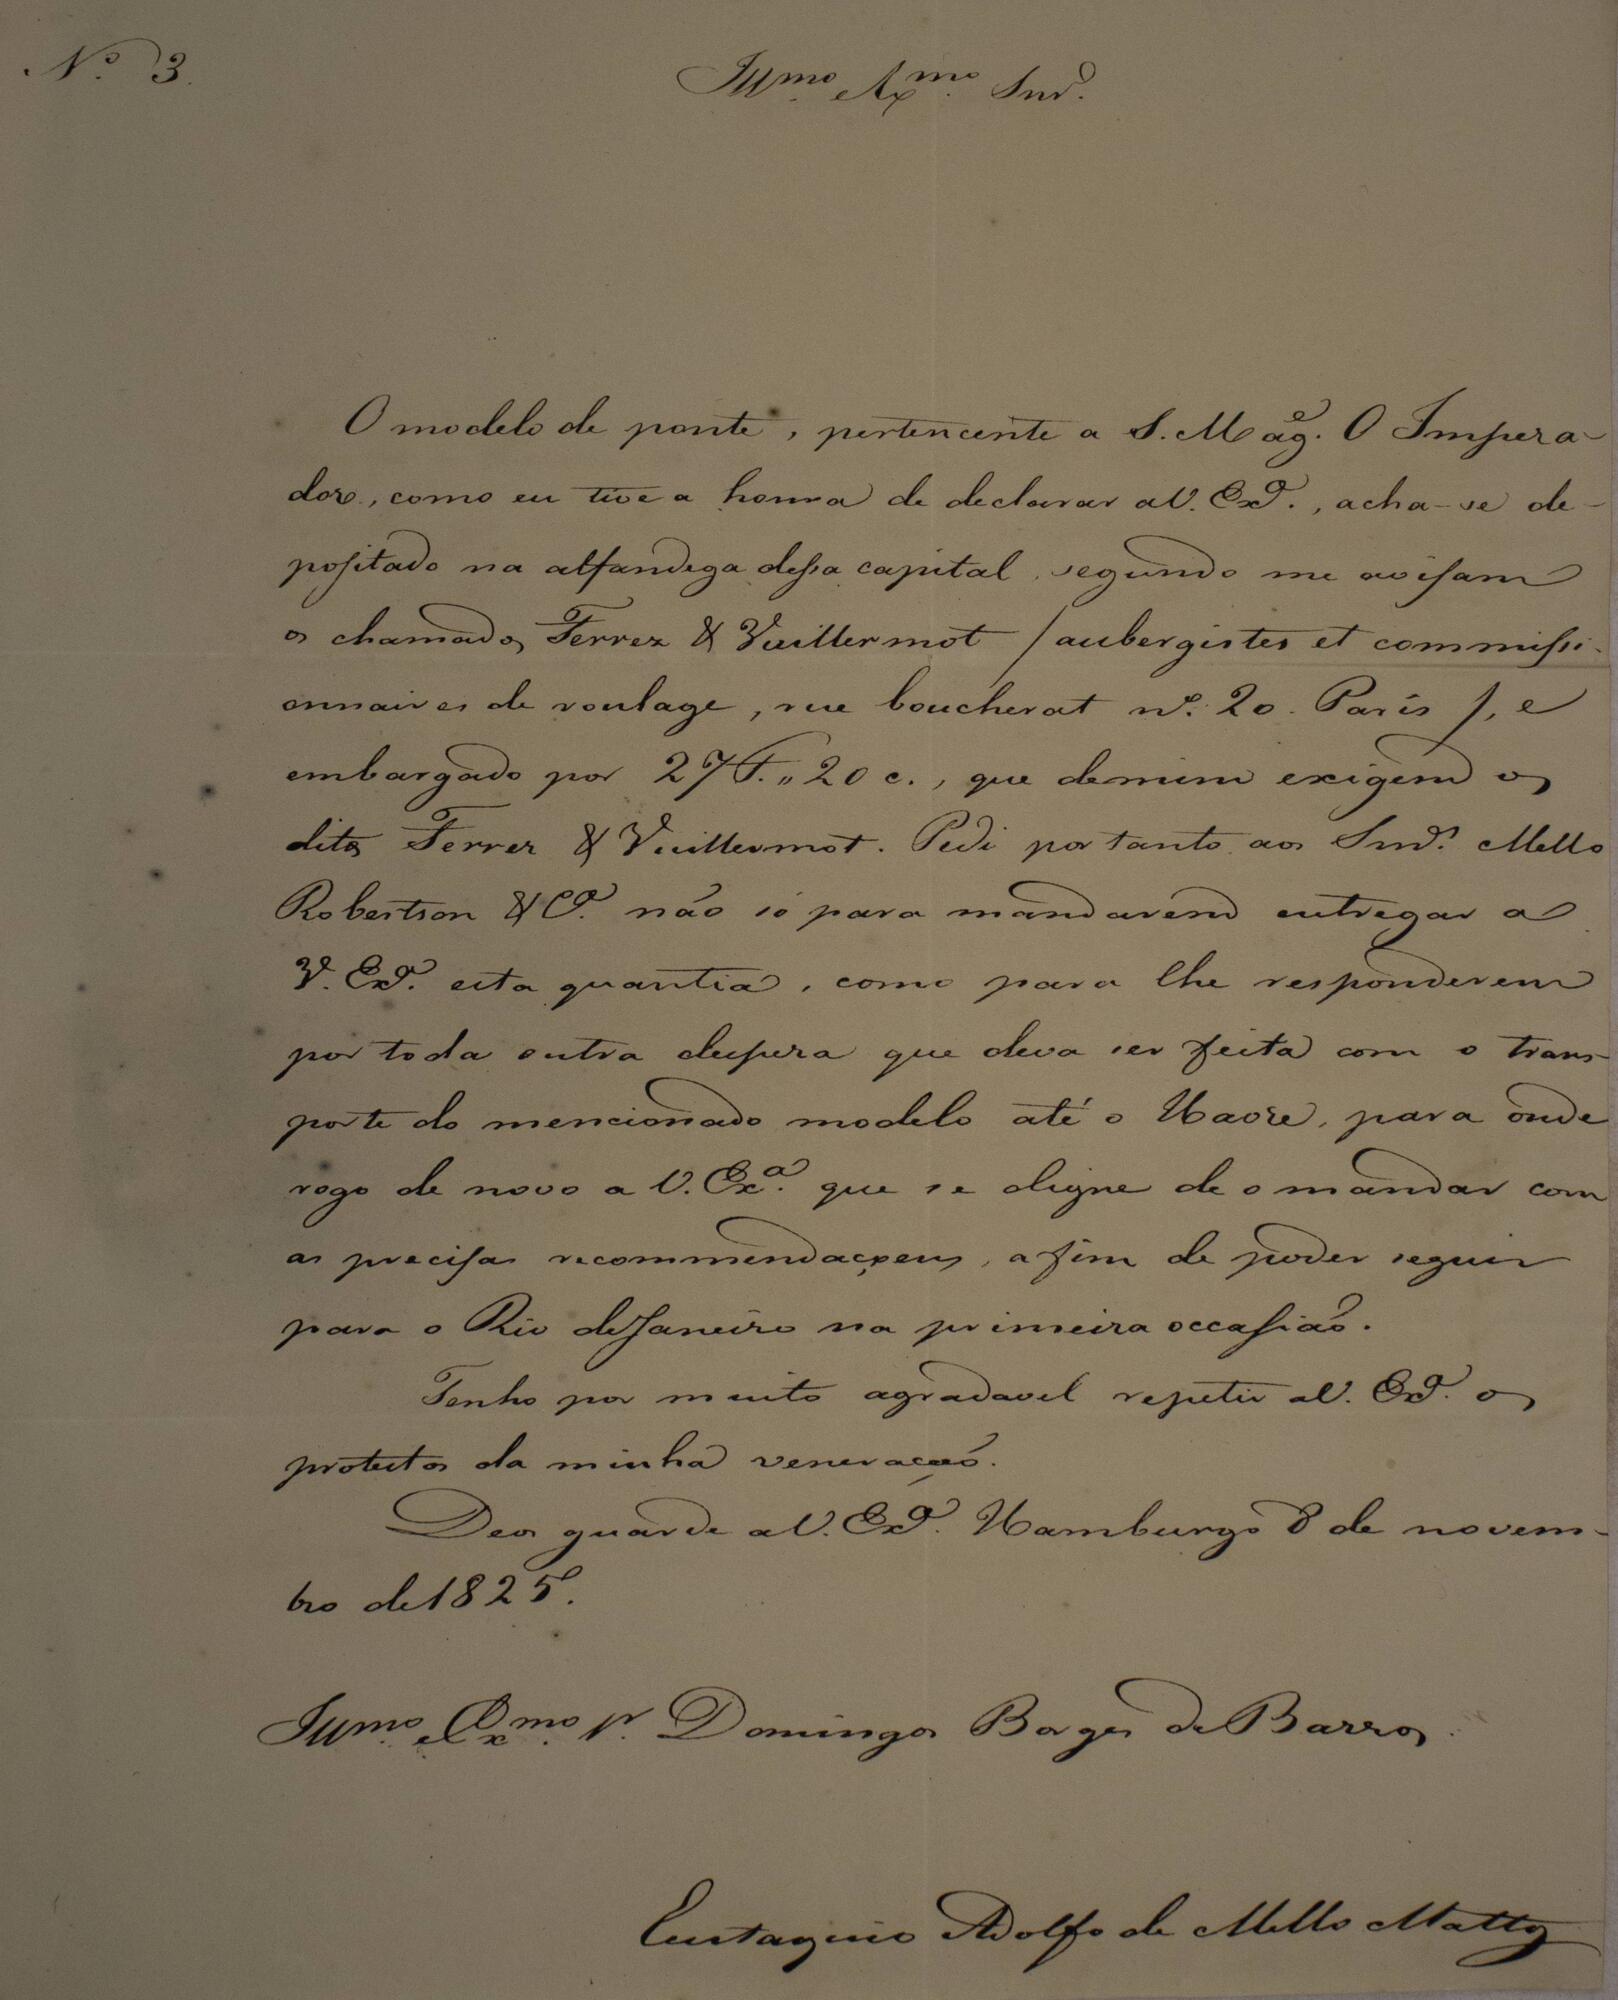 N.º 3.
Illmo. e Exmo. Snr.
O modelo de ponte, pertencente a S. Mag.e O Impera-
dor, como eu tive a honra de declarar a V. Ex.a, acha-se de-
positado na alfandega dessa capital, segundo me avisam
os chamados Ferrez & Vuillermot /aubergistes et commissi-
onnaires de roulage, rue boucherat nº. 20. Paris/, e
embargado por 27 f. " 20 c., que de mim exigem os
ditos Ferrez & Vuillermot. Pedi por tanto aos Snrs. Mello
Robertson & C.a não só para mandarem entregar a
V. Ex.a esta quantia, como para lhe responderem
por toda outra despeza que deva ser feita com o trans-
porte do mencionado modelo até o Havre, para onde
rogo de novo a V. Ex.a que se digne de o mandar com
as precisas recommendaçoens, a fim de poder seguir
para o Rio de Janeiro na primeira occasião.
Tenho por muito agradavel repetir a V. Ex.a os
protestos da minha veneração.
Deos guarde a V. Ex.a Hamburgo 8 de novem-
bro de 1825.
Illmo. e Exmo. Sr. Domingos Borges de Barros
Eustaquio Adolfo de Mello Mattos